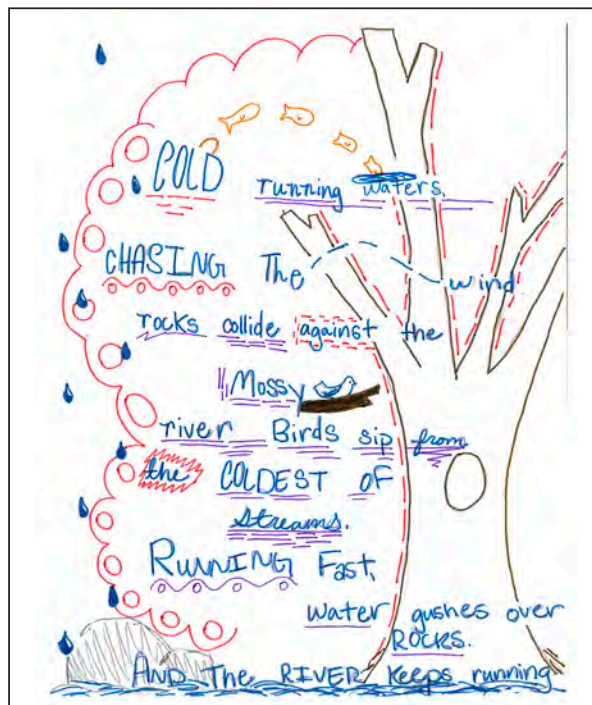 COLD running waters.
CHASING The wind
rocks collide against the
Mossy
river Birds sip from
the COLDEST OF
streams.
RUNNING Fast,
water gushes over
ROCKS.
AND The RIVER Keeps running